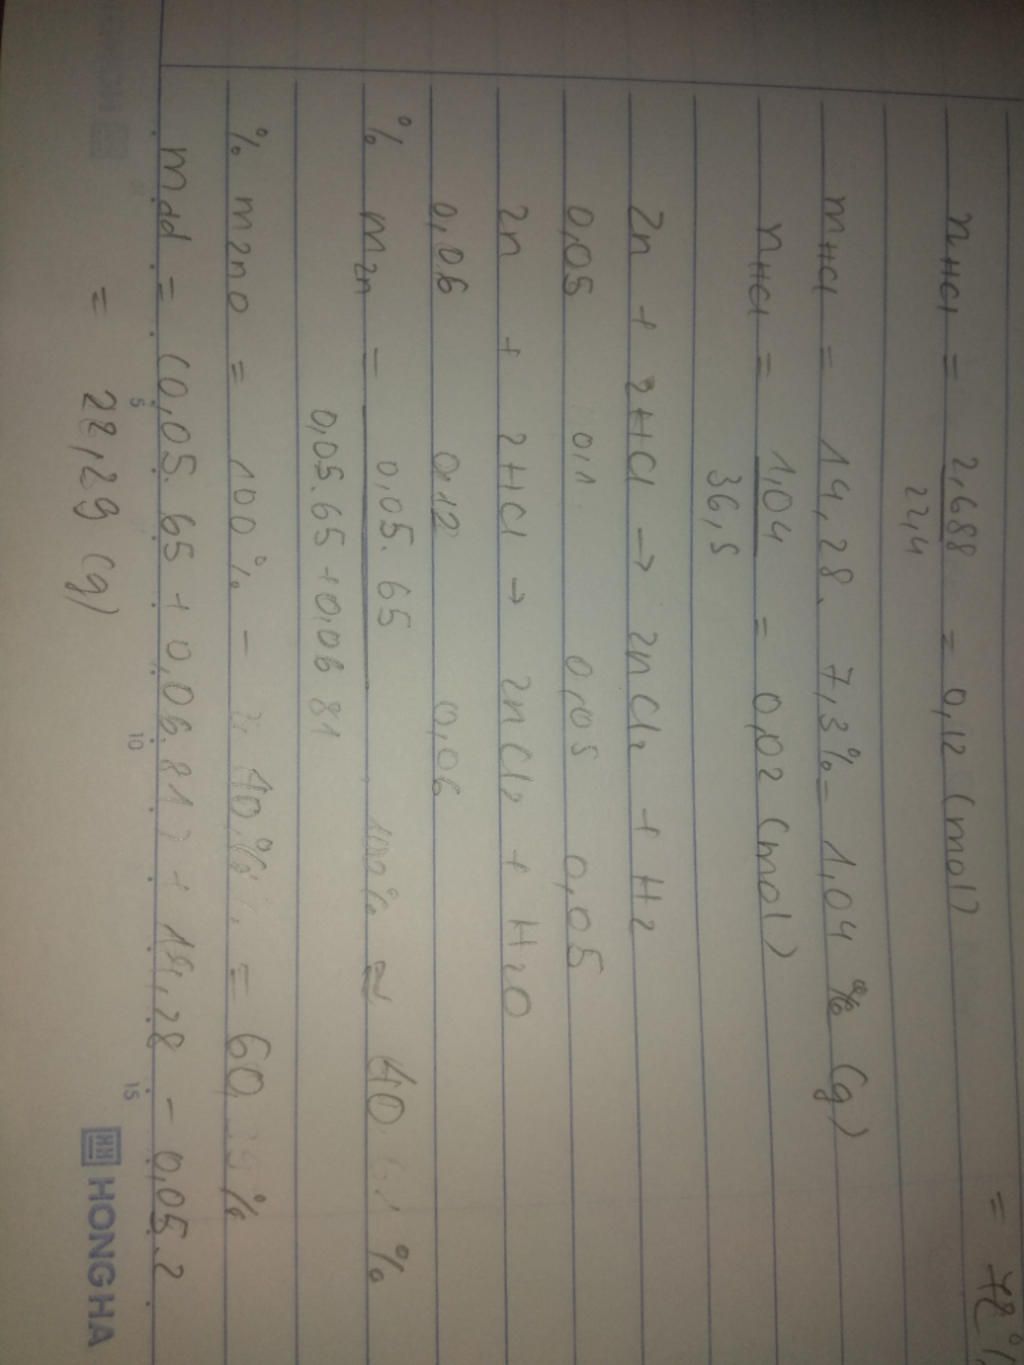 = 48%
nHCl = 2,688 / 22,4 = 0,12 (mol)
mHCl = 14,28. 7,3% = 1,04 (g)
nHCl = 1,04 / 36,5 = 0,02 (mol)
Zn + 2HCl → ZnCl2 + H2
0,05 0,1 0,05 0,05
Zn + 2HCl → ZnCl2 + H2O
0,06 0,12 0,06
% mZn = 0,05. 65 / 0,05. 65 + 0,06 81 100% ≈ 40 %
% mZnO = 100% - 40 % = 60 %
mdd = (0,05. 65 + 0,06. 81) + 14,28 - 0,05. 2
= 22,29 (g)
5 10 15
HH HONG HA